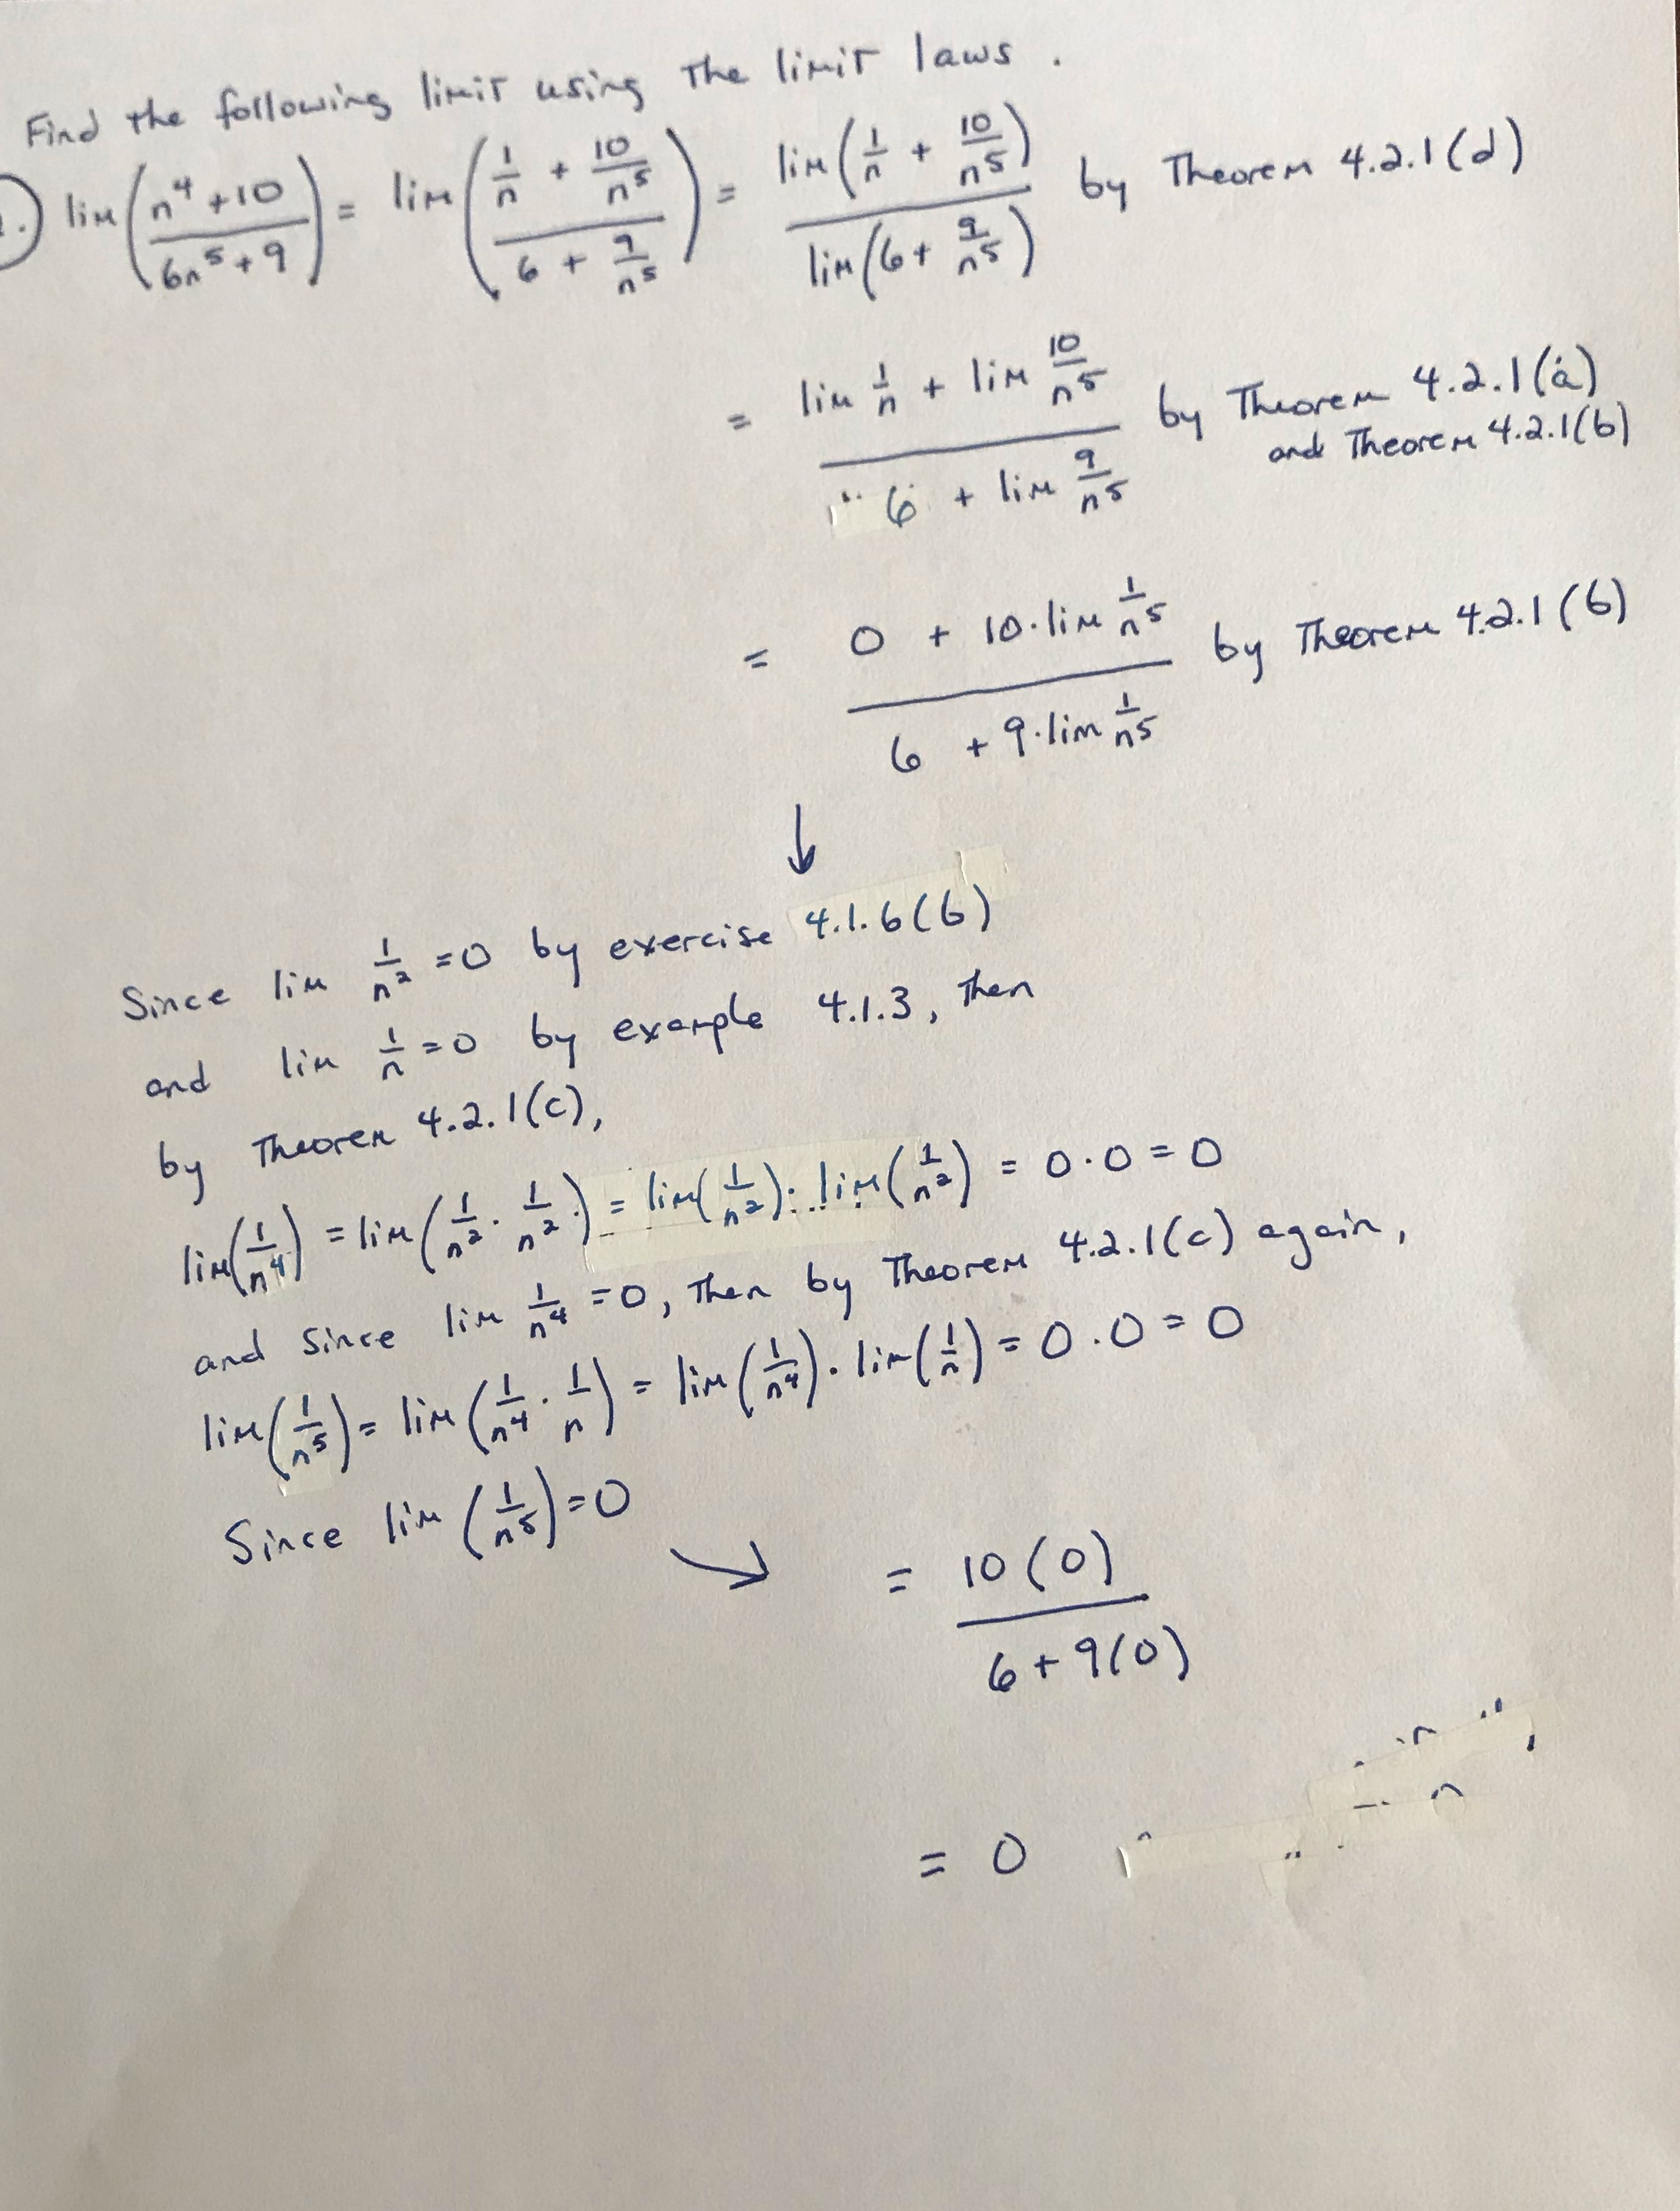 Find the following limit using the limit laws.
lim(n⁴+10 / 6n⁵+9) = lim(1/n + 10/n⁵ / 6 + 9/n⁵) = lim(1/n + 10/n⁵) / lim(6+ 9/n⁵) by Theorem 4.2.1(d)
= lim 1/n + lim 10/n⁵ / 6 + lim 9/n⁵ by Theorem 4.2.1(a)
and Theorem 4.2.1(b)
= 0 + 10·lim 1/n⁵ / 6 + 9·lim 1/n⁵ by Theorem 4.2.1(b)
↓
Since lim 1/n² =0 by exercise 4.1.6(b)
and lim 1/n =0 by example 4.1.3, then
by Theorem 4.2.1(c),
lim(1/n⁴) = lim(1/n² · 1/n² ·) = lim(1/n²)· lim(1/n²) = 0·0 = 0
and since lim 1/n⁴ =0, then by Theorem 4.2.1(c) again,
lim(1/n⁵) = lim(1/n⁴ · 1/n) = lim(1/n⁴)· lim(1/n) = 0·0 = 0
Since lim(1/n⁵)=0 ↘
= 10(0) / 6+9(0)
= 0